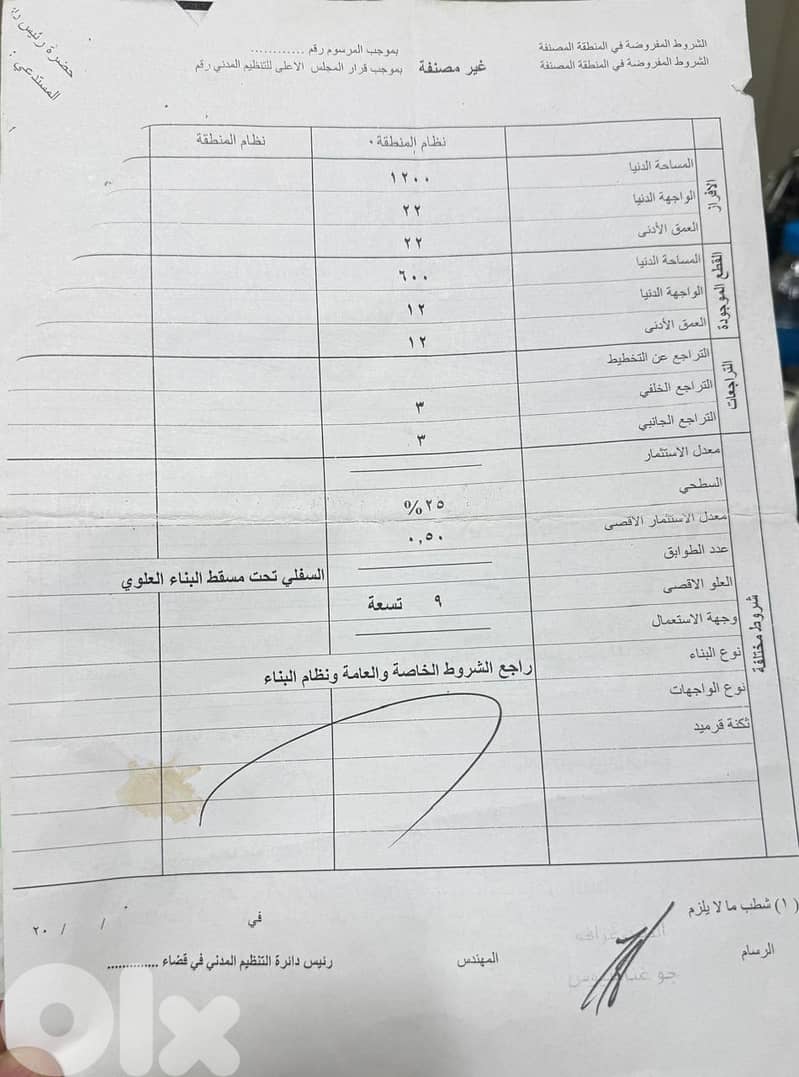 حضرة رئيس
المستدعي :
الشروط المفروضة في المنطقة المصنفة بموجب المرسوم رقم ............
الشروط المفروضة في المنطقة المصنفة غير مصنفة بموجب قرار المجلس الاعلى للتنظيم المدني رقم
نظام المنطقة نظام المنطقة
الافراز
المساحة الدنيا ١٢٠٠
الواجهة الدنيا ٢٢
العمق الأدنى ٢٢
القطع الموجودة
المساحة الدنيا ٦٠٠
الواجهة الدنيا ١٢
العمق الأدنى ١٢
التراجعات
التراجع عن التخطيط
التراجع الخلفي ٣
التراجع الجانبي ٣
شروط مختلفة
معدل الاستثمار
السطحي ٢٥%
معدل الاستثمار الاقصى ٠,٥٠
عدد الطوابق
السفلي تحت مسقط البناء العلوي
العلو الاقصى ٩ تسعة
وجهة الاستعمال
نوع البناء راجع الشروط الخاصة والعامة ونظام البناء
نوع الواجهات
ثكنة قرميد
(١) شطب ما لا يلزم
في / / ٢٠
الرسام المهندس رئيس دائرة التنظيم المدني في قضاء .............
olx